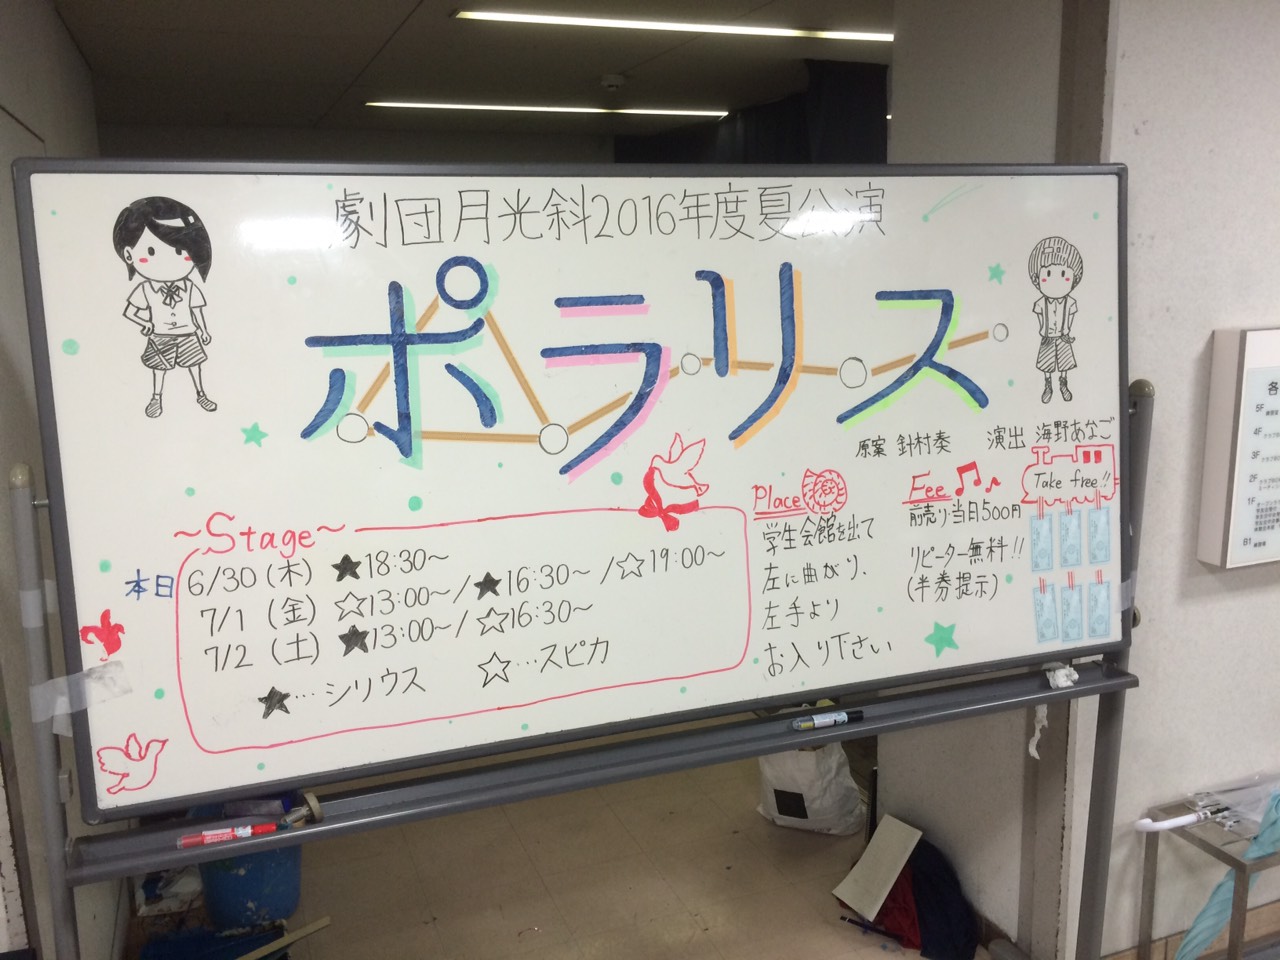 劇団月光斜2016年度夏公演
ポラリス
原案 針村奏 演出 海野あなご
~Stage~
本日 6/30 (木) ★18:30~
7/1 (金) ☆13:00~/★16:30~/☆19:00~
7/2 (土) ★13:00~/☆16:30~
★…シリウス ☆…スピカ
Place
学生会館を出て
左に曲がり、
左手より
お入り下さい
Fee
前売り・当日500円
リピーター無料!!
(半券提示)
Take free!!
各
5F
4F
3F
2F
1F
B1